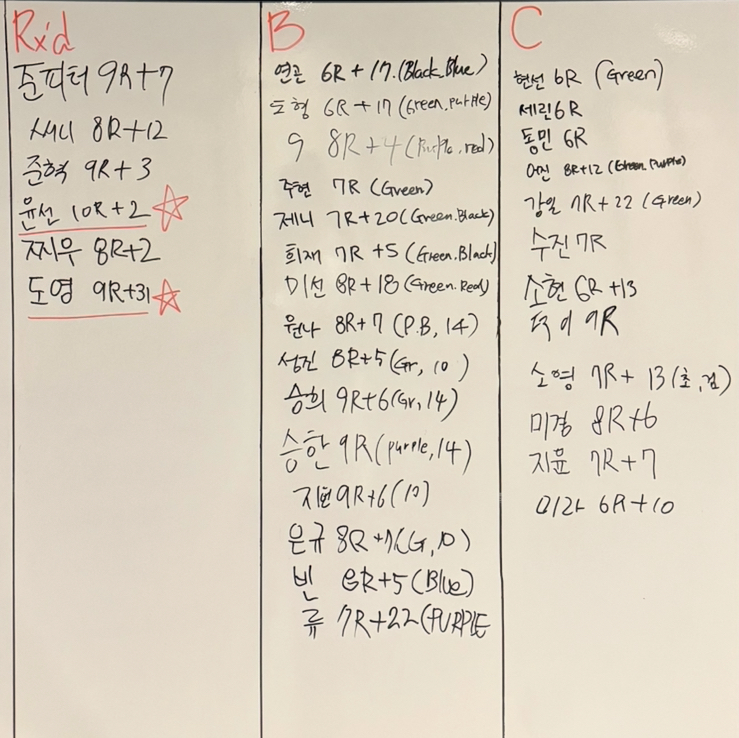 Rx'd
준피터 9R+7
써니 8R+12
준혁 9R+3
윤선 10R+2
찌우 8R+2
도영 9R+31
B
연근 6R+17.(Black.Blue)
도형 6R+17(Green.purple)
9 8R+4(Purple.red)
주현 7R(Green)
제니 7R+20(Green.Black)
희재 7R+5(Green.Black)
미선 8R+18(Green.Red)
원나 8R+7(P.B,14)
성진 8R+5(Gr,10)
승희 9R+6(Gr,14)
승한 9R(purple,14)
지현 9R+6(10)
은규 8R+7(G,10)
빈 8R+5(Blue)
류 7R+22(PURPLE
C
현선 6R (Green)
세린 6R
동민 6R
어진 8R+12(Green.Purple)
강일 7R+22(Green)
수진 7R
소현 6R+13
덕이 9R
소영 7R+13(초,검)
미경 8R+6
지윤 7R+7
미라 6R+10